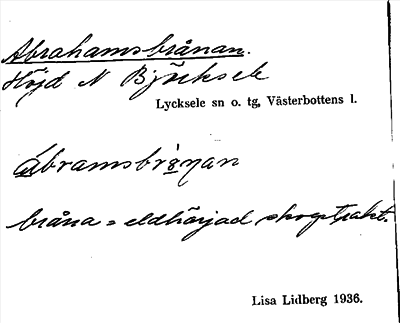 Abrahamsbrånan.
Höjd N Björksele
Lycksele sn o. tg, Västerbottens l.
ábramsbrånan
bråna = eldhärjad skogstrakt.
Lisa Lidberg 1936.